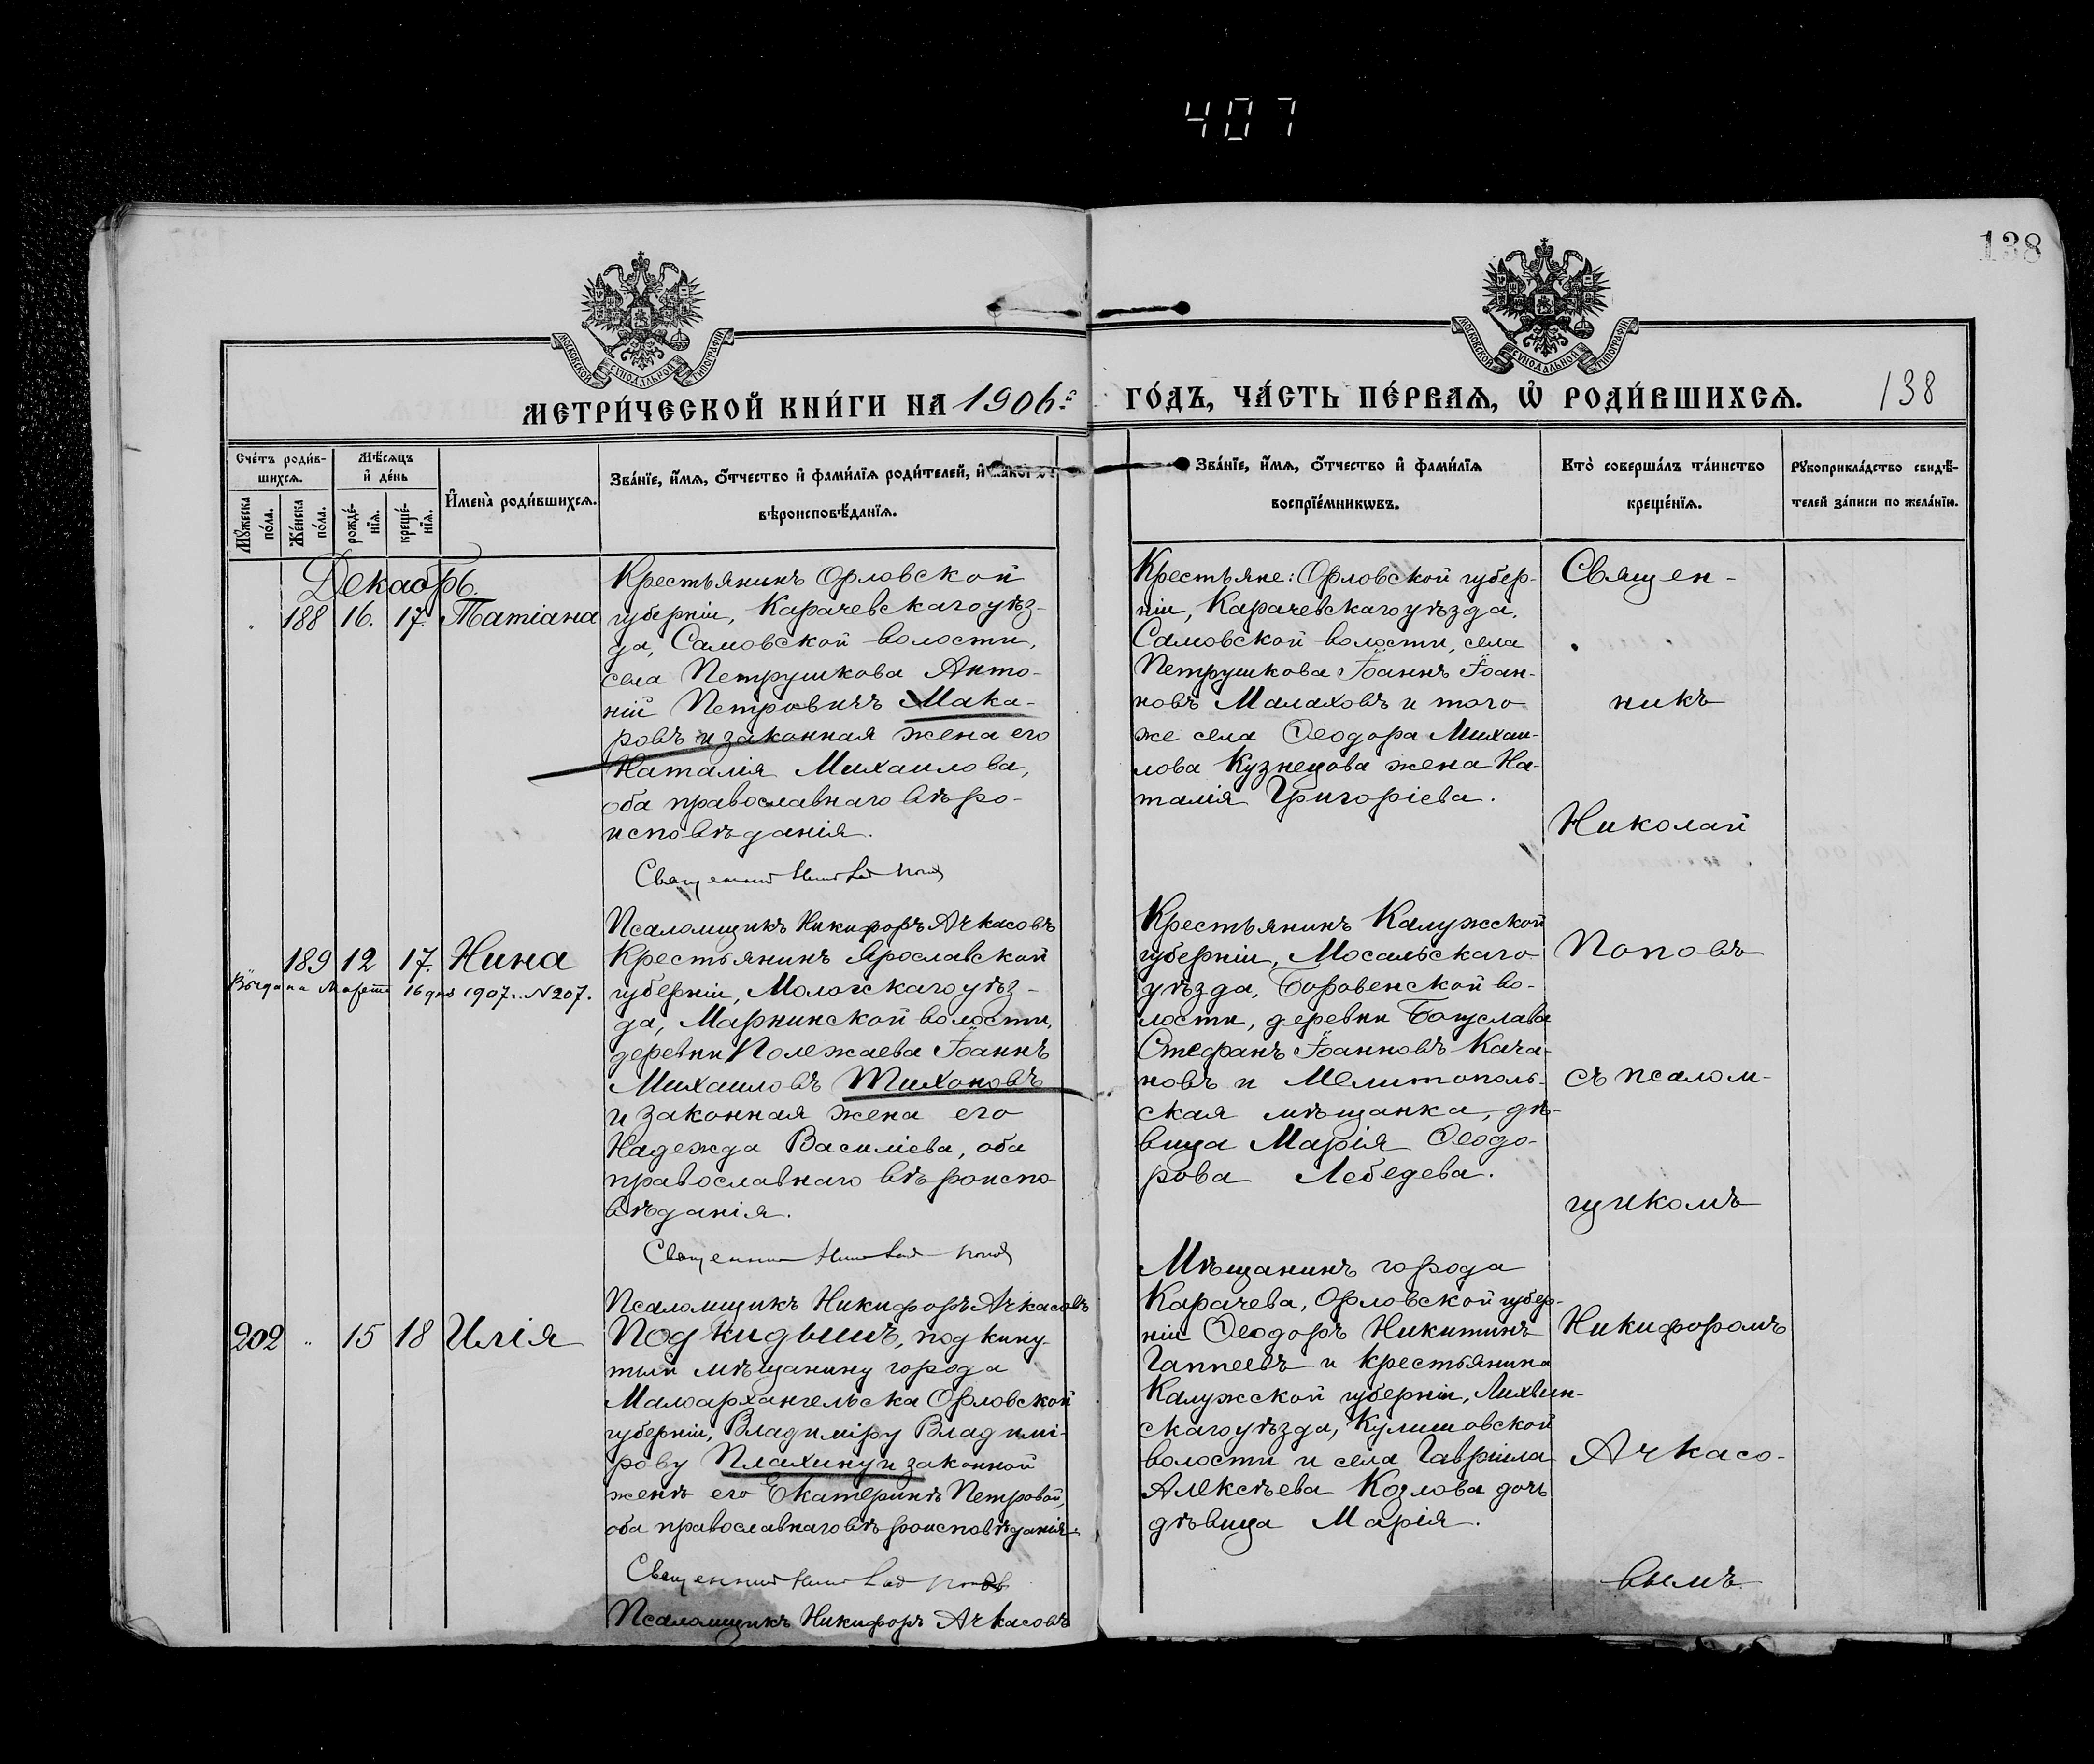 407
138
МОСКОВСКОЙ СѴНОДАЛЬНОЙ ТИПОГРАФІИ
МОСКОВСКОЙ СѴНОДАЛЬНОЙ ТИПОГРАФІИ
МЕТРИ́ЧЕСКОЙ КНИ́ГИ НА 1906й
ГО́ДЪ, ЧА́СТЬ ПЕ́РВАѦ, Ѡ҆ РОДИ́ВШИХСѦ.
138
Сче́тъ роди́в-
шихсѧ.
Мѣ́сѧцъ
и҆ де́нь
Мꙋ́жеска
по́ла.
Же́нска
по́ла.
рожде́-
нїѧ.
креще́-
нїѧ.
И҆мена̀ роди́вшихсѧ.
Зва́нїе, и҆́мѧ, ѻ҆́тчество и҆ фами́лїѧ роди́телей, и҆
вѣроисповѣ́данїѧ.
Зва́нїе, и҆́мѧ, ѻ҆́тчество и҆ фами́лїѧ
воспрїе́мникѡвъ.
Кто̀ соверша́лъ та́инство
креще́нїѧ.
Рꙋкоприкла́дство свидѣ́-
телей за́писи по жела́нїю.
Декабрь.
188 16. 17. Татіана
Крестьянинъ Орловской
губерніи, Карачевскаго уѣз-
да, Самовской волости,
села Петрушкова Анто-
ній Петровичъ Мака-
ровъ и законная жена его
Наталія Михаилова,
оба православнаго вѣро-
исповѣданія.
Священникъ Николай Поповъ
Псаломщикъ Никифоръ Ачкасовъ
Крестьяне: Орловской губер-
ніи, Карачевскаго уѣзда,
Самовской волости, села
Петрушкова Іоаннъ Іоан-
новъ Малаховъ и того
же села Ѳеодора Михаи-
лова Кузнецова жена На-
талія Григоріева.
189 12 17. Нина
Выдана Марта 16 дня 1907 г. N 207.
Крестьянинъ Ярославской
губерніи, Мологскаго уѣз-
да, Марьинской волости,
деревни Полежаева Іоаннъ
Михаиловъ Тихоновъ
и законная жена его
Надежда Василіева, оба
православнаго вѣроиспо-
вѣданія.
Священникъ Николай Поповъ
Псаломщикъ Никифоръ Ачкасовъ
Крестьянинъ Калужской
губерніи, Мосальскаго
уѣзда, Боровенской во-
лости, деревни Богуслава
Стефанъ Іоанновъ Кача-
новъ и Мелитополь-
ская мѣщанка, дѣ-
вица Марія Ѳеодо-
рова Лебедева.
202 " 15 18 Илія
Подкидышъ, подкину-
тый мѣщанину города
Малоархангельска Орловской
губерніи, Владиміру Владимі-
рову Плахину и законной
женѣ его Екатеринѣ Петровой,
оба православнаго вѣроисповѣданія.
Священникъ Николай Поповъ
Псаломщикъ Никифоръ Ачкасовъ
Мѣщанинъ города
Карачева, Орловской губер-
ніи Ѳеодоръ Никитинъ
Гаппеевъ и крестьянина
Калужской губерніи, Лихвин-
скаго уѣзда, Кулешовской
волости и села Гавріила
Алексѣева Козлова дочь
дѣвица Марія.
Священ-
никъ
Николай
Поповъ
съ псалом-
щикомъ
Никифоромъ
Ачкасо-
вымъ.